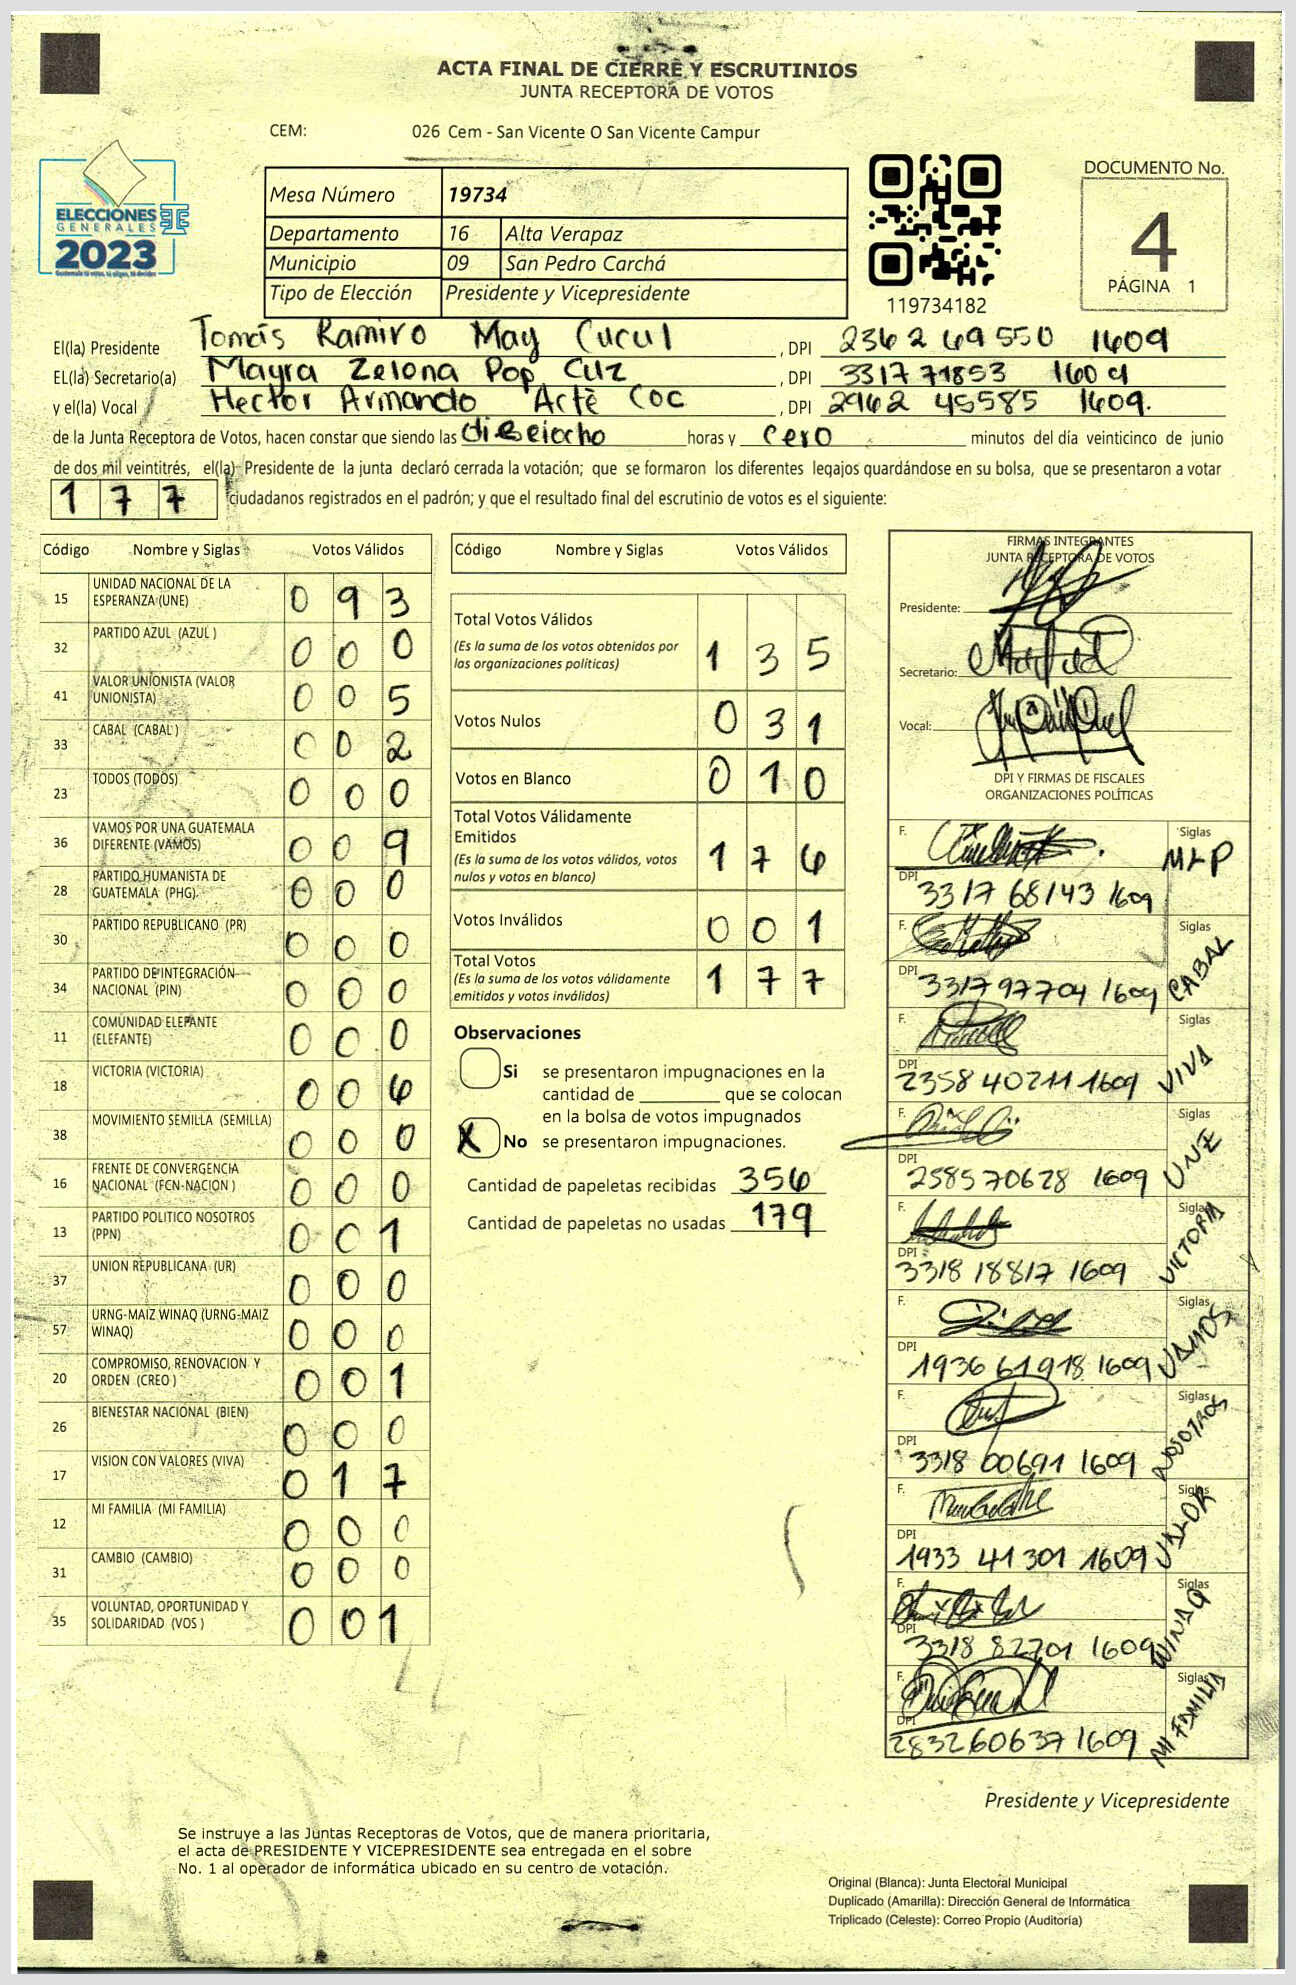 ACTA FINAL DE CIERRE Y ESCRUTINIOS
JUNTA RECEPTORA DE VOTOS
CEM: 026 Cem - San Vicente O San Vicente Campur
ELECCIONES
GENERALES
2023
Mesa Número 19734
Departamento 16 Alta Verapaz
Municipio 09 San Pedro Carchá
Tipo de Elección Presidente y Vicepresidente
119734182
DOCUMENTO No.
4
PÁGINA 1
El(la) Presidente Tomás Ramiro May Cucul , DPI 2362 69550 1609
EL(la) Secretario(a) Mayra Zelena Pop Cuz , DPI 3317 71853 1609
y el(la) Vocal Hector Armando Acté Coc , DPI 2962 45585 1609.
de la Junta Receptora de Votos, hacen constar que siendo las dieciocho horas y cero minutos del día veinticinco de junio
de dos mil veintitrés, el(la) Presidente de la junta declaró cerrada la votación; que se formaron los diferentes legajos guardándose en su bolsa, que se presentaron a votar
177 ciudadanos registrados en el padrón; y que el resultado final del escrutinio de votos es el siguiente:
Código Nombre y Siglas Votos Válidos
15 UNIDAD NACIONAL DE LA ESPERANZA (UNE) 0 9 3
32 PARTIDO AZUL (AZUL ) 0 0 0
41 VALOR UNIONISTA (VALOR UNIONISTA) 0 0 5
33 CABAL (CABAL ) 0 0 2
23 TODOS (TODOS) 0 0 0
36 VAMOS POR UNA GUATEMALA DIFERENTE (VAMOS) 0 0 9
28 PARTIDO HUMANISTA DE GUATEMALA (PHG) 0 0 0
30 PARTIDO REPUBLICANO (PR) 0 0 0
34 PARTIDO DE INTEGRACIÓN NACIONAL (PIN) 0 0 0
11 COMUNIDAD ELEFANTE (ELEFANTE) 0 0 0
18 VICTORIA (VICTORIA) 0 0 6
38 MOVIMIENTO SEMILLA (SEMILLA) 0 0 0
16 FRENTE DE CONVERGENCIA NACIONAL (FCN-NACION ) 0 0 0
13 PARTIDO POLITICO NOSOTROS (PPN) 0 0 1
37 UNION REPUBLICANA (UR) 0 0 0
57 URNG-MAIZ WINAQ (URNG-MAIZ WINAQ) 0 0 0
20 COMPROMISO, RENOVACION Y ORDEN (CREO ) 0 0 1
26 BIENESTAR NACIONAL (BIEN) 0 0 0
17 VISION CON VALORES (VIVA) 0 1 7
12 MI FAMILIA (MI FAMILIA) 0 0 0
31 CAMBIO (CAMBIO) 0 0 0
35 VOLUNTAD, OPORTUNIDAD Y SOLIDARIDAD (VOS ) 0 0 1
Código Nombre y Siglas Votos Válidos
Total Votos Válidos 1 3 5
(Es la suma de los votos obtenidos por
las organizaciones políticas)
Votos Nulos 0 3 1
Votos en Blanco 0 1 0
Total Votos Válidamente
Emitidos 1 7 6
(Es la suma de los votos válidos, votos
nulos y votos en blanco)
Votos Inválidos 0 0 1
Total Votos 1 7 7
(Es la suma de los votos válidamente
emitidos y votos inválidos)
Observaciones
Si se presentaron impugnaciones en la
cantidad de ________ que se colocan
en la bolsa de votos impugnados
X No se presentaron impugnaciones.
Cantidad de papeletas recibidas 356
Cantidad de papeletas no usadas 179
FIRMAS INTEGRANTES
JUNTA RECEPTORA DE VOTOS
Presidente:
Secretario:
Vocal:
DPI Y FIRMAS DE FISCALES
ORGANIZACIONES POLÍTICAS
F. Siglas MLP
DPI 3317 68143 1609
F. Siglas CABAL
DPI 3317 97704 1609
F. Siglas VIVA
DPI 2358 40211 1609
F. Siglas UNE
DPI 2585 70628 1609
F. Siglas VICTORIA
DPI 3318 18817 1609
F. Siglas VAMOS
DPI 1936 61918 1609
F. Siglas NOSOTROS
DPI 3318 00691 1609
F. Siglas VALOR
DPI 1933 41301 1609
F. Siglas WINAQ
DPI 3318 82701 1609
F. Siglas MI FAMILIA
DPI 2832 60637 1609
Presidente y Vicepresidente
Se instruye a las Juntas Receptoras de Votos, que de manera prioritaria,
el acta de PRESIDENTE Y VICEPRESIDENTE sea entregada en el sobre
No. 1 al operador de informática ubicado en su centro de votación.
Original (Blanca): Junta Electoral Municipal
Duplicado (Amarilla): Dirección General de Informática
Triplicado (Celeste): Correo Propio (Auditoría)